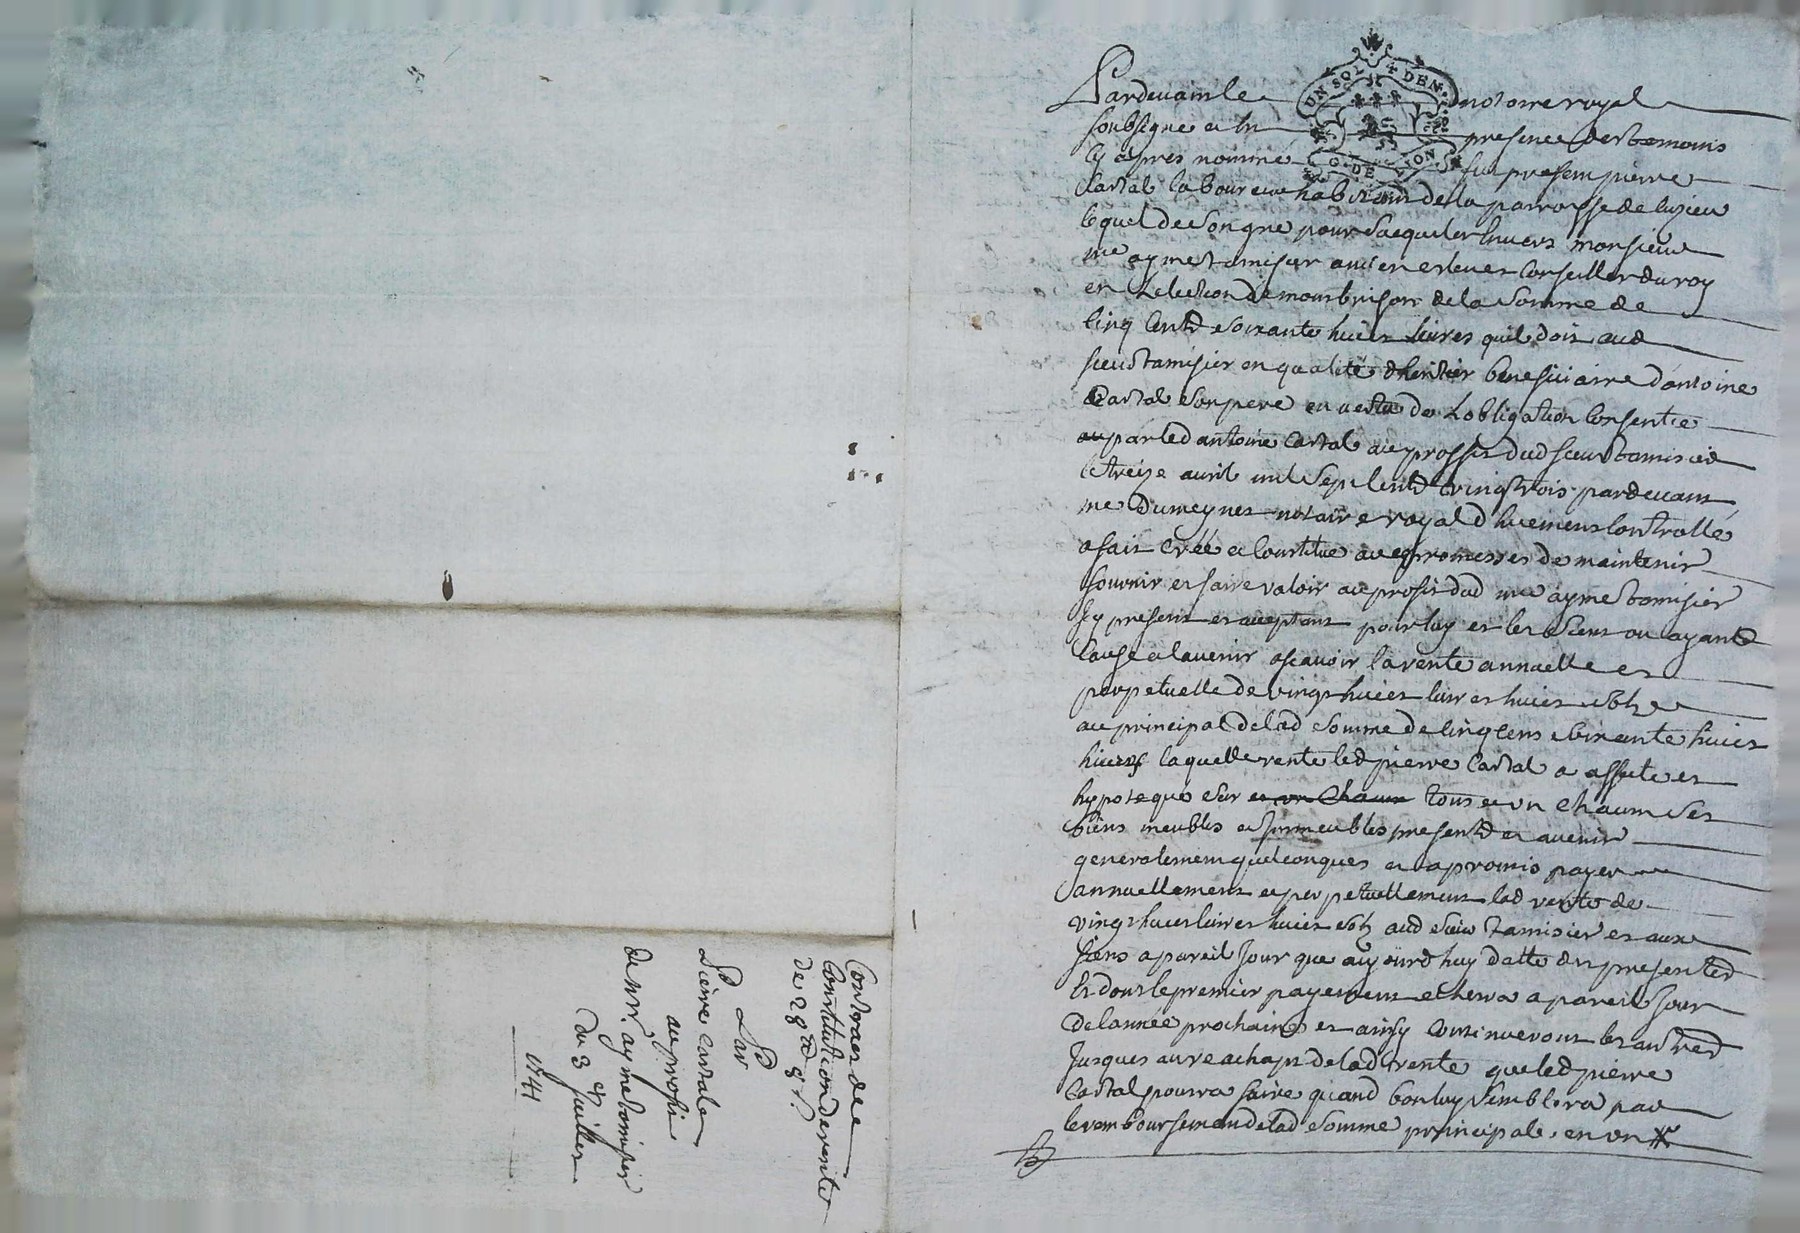 UN SOL 4 DEN.
G. DE LION.
Pardevant le notaire royal
soubsigne et en presence des temoins
cy apres nommé fut present pierre
Cartal laboureur habitant de la parroisse de luzieu
lequel de son gre pour sacquiter envers monsieur
me ayme tamisier ancien esleu et Conseiller du roy
en Lelection de montbrison de la somme de
cinq Cents soixante huict livres quil doit aud
sieur tamisier en qualité dheritier beneficiaire dantoine
Cartal son pere en vertu de Lobligation consentie
par led antoine Cartal au proffit dud sieur tamisier
le treize avril mil sept Cents vingt trois pardevant
me Dumeynet notaire royal controllé
a fait créé et constitue avec promesses de maintenir
fournir et faire valoir au profit dud me ayme tamisier
icy present et acceptant pour luy et les siens ou ayants
cause a lavenir ascavoir la rente annuelle et
perpetuelle de vingt huict livres huict sols
au principal de lad somme de cinq cens soixante huict
livres laquelle rente led pierre Cartal a affecte et
hypoteque sur et un chacun tous et un chacun ses
biens meubles et immeubles presents et avenir
generalement quelconques et a promis payer
annuellement et perpetuellement lad rente de
vingt huict livres huict sols aud sieur tamisier et aux
siens a pareil jour que aujourdhuy datte des presentes
Et dont le premier payement echerra a pareil jour
de lannée prochaine et ainsy continueront les autres
jusques au reachapt de lad rente que led pierre
Cartal pourra faire quand bon luy semblera par
le remboursement de lad somme principale en un
Contract de
Constitution de rente
de 28 ll 8 s.
Par
Pierre cartal
au profit
de mr. ayme tamisier
du 3e juillet
1741